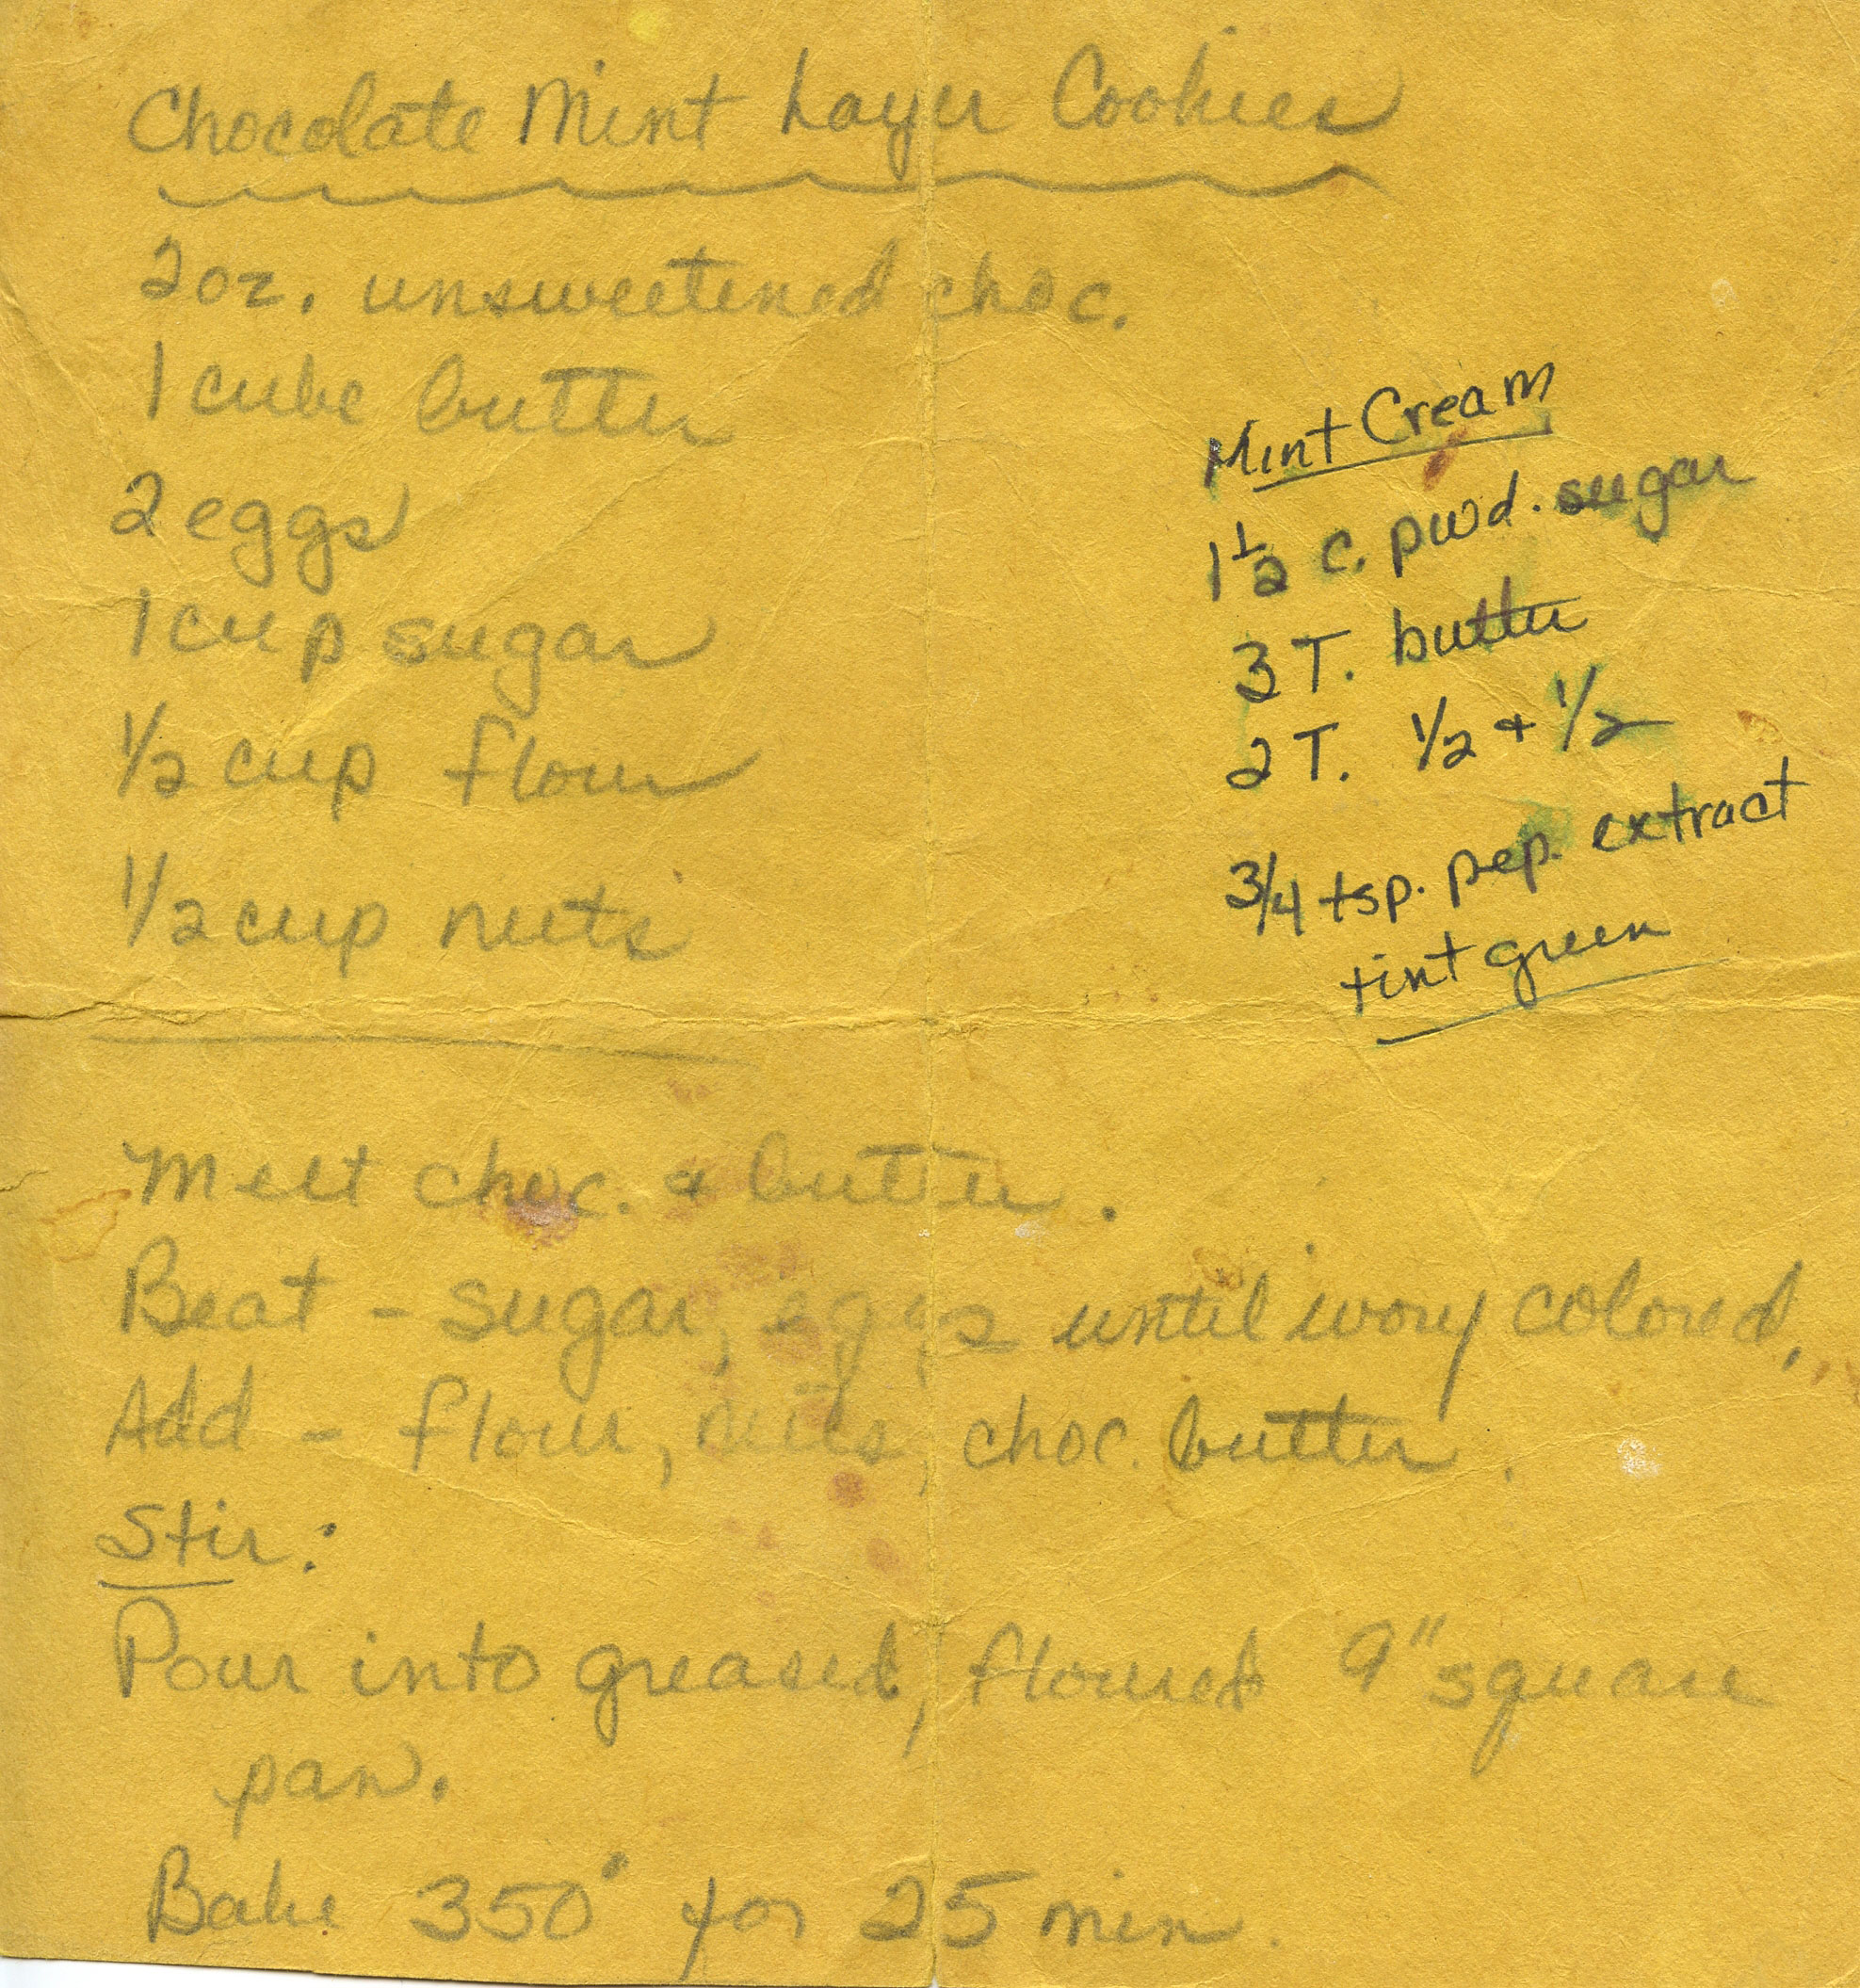 Chocolate Mint Layer Cookies
2 oz. unsweetened choc.
1 cube butter
2 eggs
1 cup sugar
1/2 cup flour
1/2 cup nuts
Mint Cream
1 1/2 c. pwd. sugar
3 T. butter
2 T. 1/2 + 1/2
3/4 tsp. pep. extract
tint green
Melt choc. + butter.
Beat - sugar, eggs until ivory colored.
Add - flour, nuts, choc. butter.
Stir:
Pour into greased, floured 9" square
pan.
Bake 350° for 25 min.